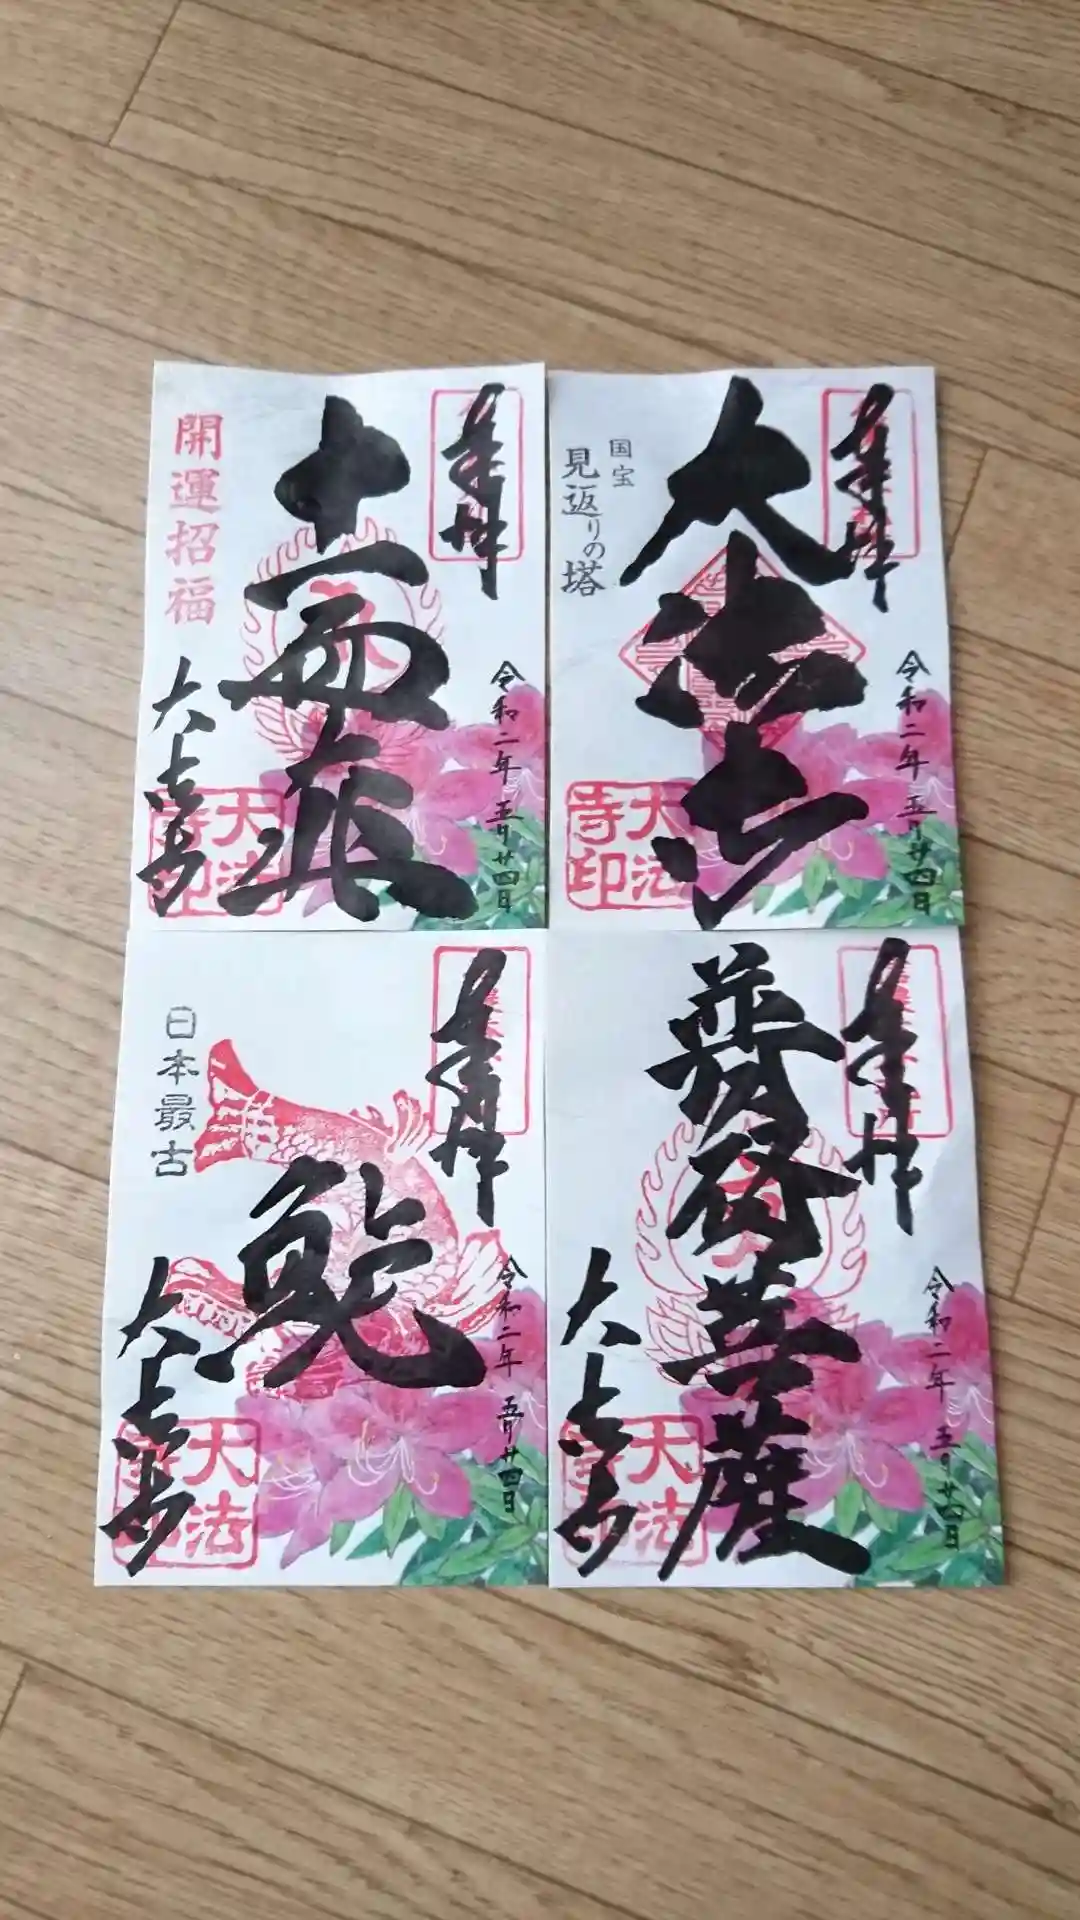 奉拝
十一面尊
開運招福
大法寺
令和二年 五月廿四日
大法寺印
奉拝
大法寺
国宝
見返りの塔
令和二年 五月廿四日
大法寺印
奉拝
鯱
日本最古
大法寺
令和二年 五月廿四日
大法寺印
奉拝
普賢菩薩
大法寺
令和二年 五月廿四日
大法寺印